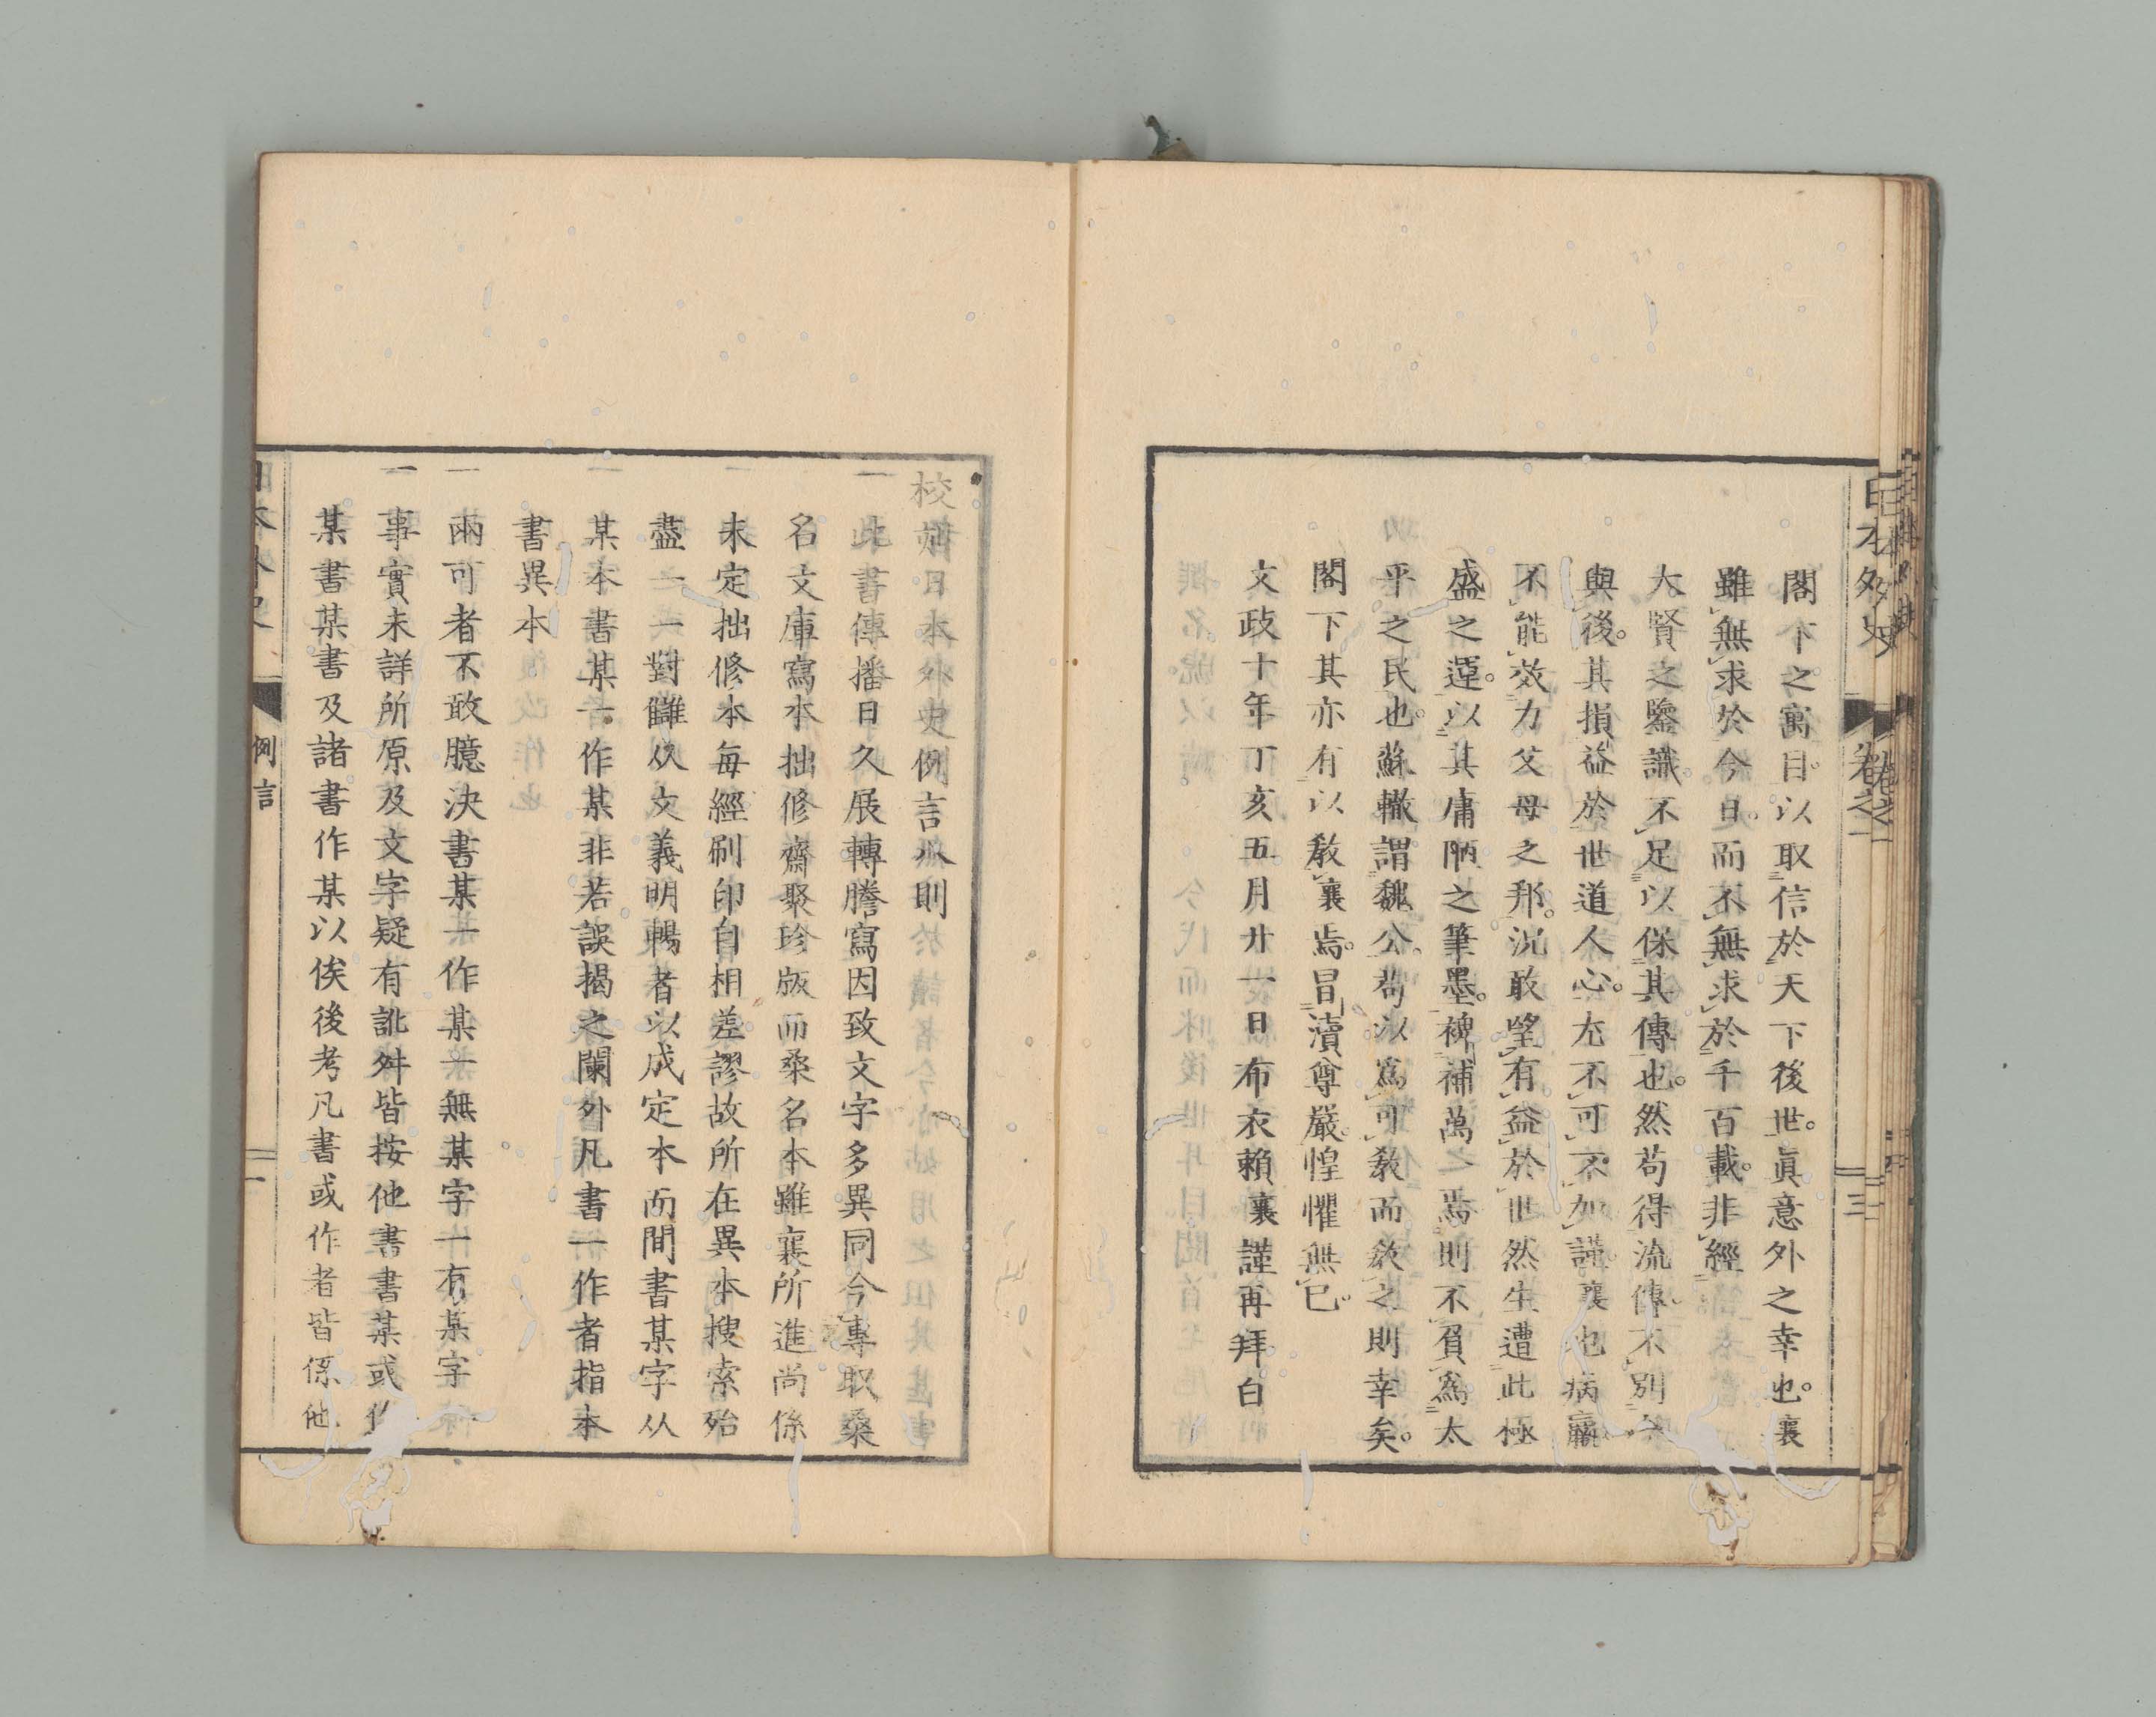 日本外史
卷之一
三
閣下之寓目。以取信於天下後世。眞意外之幸也。襄
雖無求於今日。而不無求於千百載。非經
大賢之鑒識。不足以保其傳也。然苟得流傳。不別
與後。其損益於世道人心。尤不可不加謹。襄也病
不能效力父母之邦。況敢望有益於世然生遭此極
盛之運。以其庸陋之筆墨。裨補萬一焉則不負爲太
平之民也。蘇轍謂魏公。苟以爲可教而敎之則幸矣。
閣下其亦有以敎襄焉。冒瀆尊嚴。惶懼無已。
文政十年丁亥五月廿一日布衣賴襄謹再拜白
校日本外史例言八則
一此書傳播日久展轉謄寫因致文字多異同今專取桑
名文庫寫本拙修齋聚珍版而桑名本雖襄所進尚係
未定拙修本每經刷印自相差謬故所在異本搜索殆
盡一一對讎从文義明暢者以成定本而間書某字从
某本書某一作某非若誤揭之闌外凡書一作者指本
書異本
一兩可者不敢臆決書某一作某一無某字一有某字
一事實未詳所原及文字疑有訛舛皆按他書書某或作
某書某書及諸書作某以俟後考凡書或作者皆係他
日本外史
例言
一